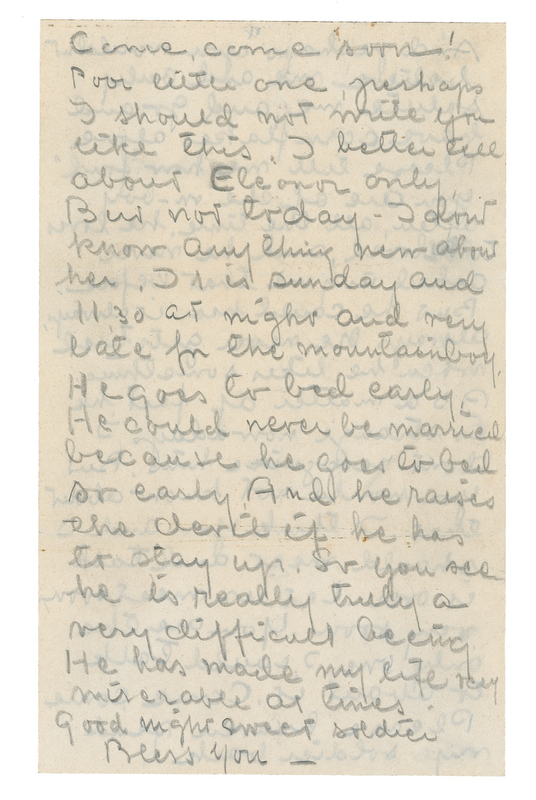 Come, come soon!
Poor little one perhaps
I should not write you
like this. I better tell
about Eleonor only.
But not today - I dont
know anything new about
her. It is sunday and
11 30 at night and very
late for the mountainboy.
He goes to bed early.
He could never be married
because he goes to bed
so early. And he raises
the devil if he has
to stay up. So you see
he is really truly a
very difficult being
He has made my life very
miserable at times.
Good night sweet soldier
Bless you —